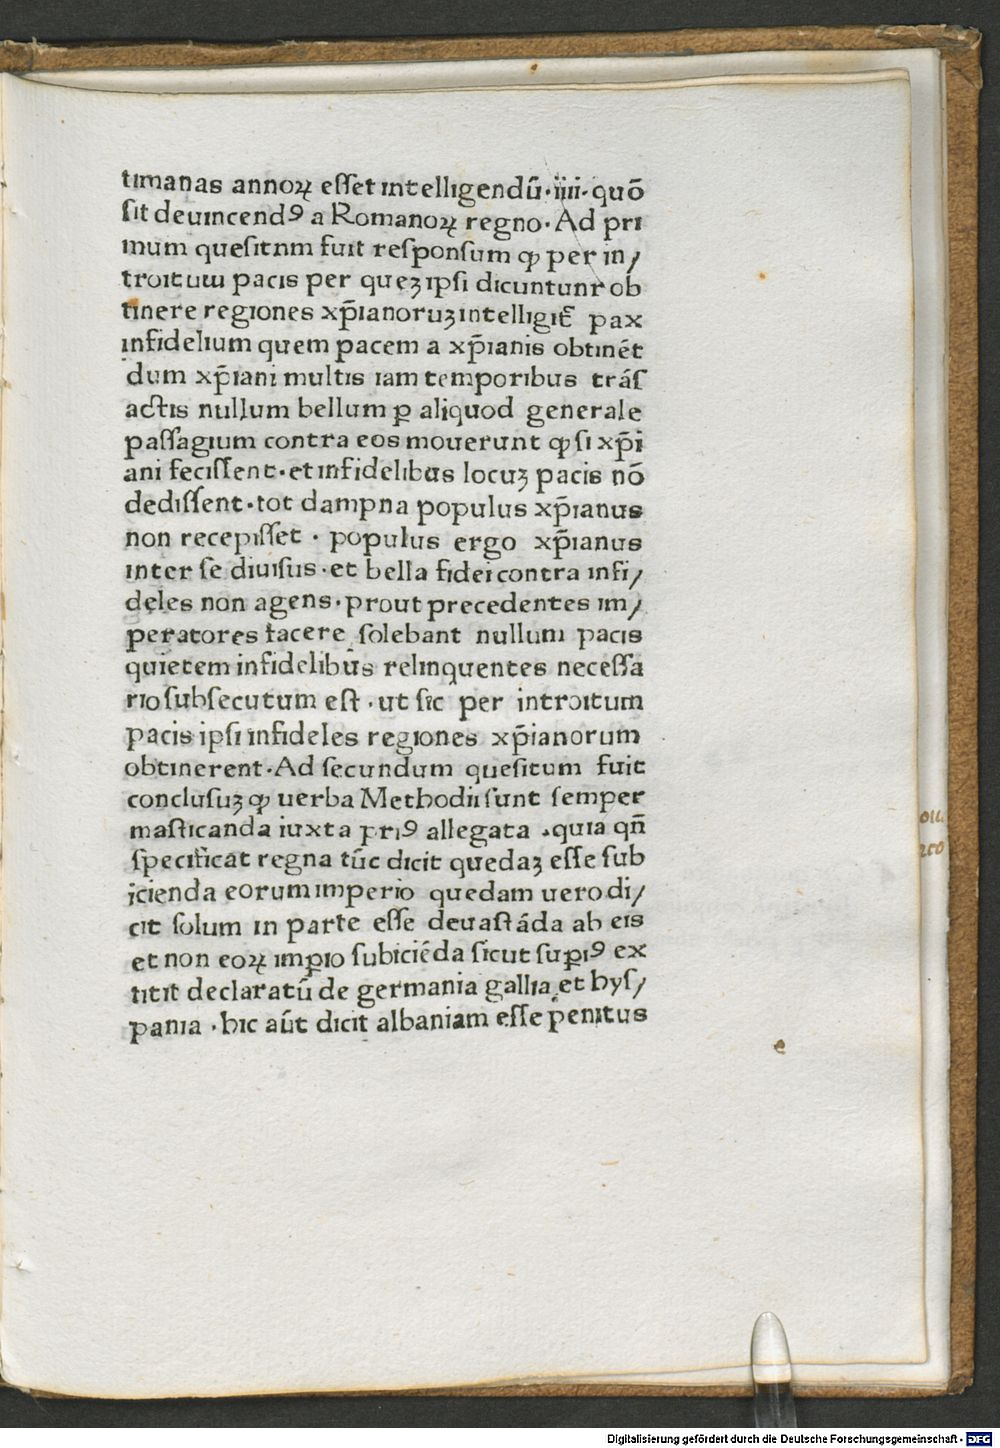 timanas annoꝝ eſſet intelligendū·iiii·quō
ſit deuincendꝰ a Romanoꝝ regno·Ad pri
mum queſitnm fuit reſponſum ꝙ per in/
troitum pacis per queʒ ipſi dicuntunr ob
tinere regiones xp̄ianoruʒ intelligit̄ pax
infidelium quem pacem a xp̄ianis obtinēt
dum xp̄iani multis iam temporibus trāſ
actis nullum bellum ꝑ aliquod generale
paſſagium contra eos mouerunt ꝙ ſi xp̄i
ani feciſſent·et infidelibus locuʒ pacis nō
dediſſent·tot dampna populus xp̄ianus
non recepiſſet · populus ergo xp̄ianus
inter ſe diuiſus·et bella fidei contra infi/
deles non agens·prout precedentes im/
peratores facere ſolebant nullum pacis
quietem infidelibus relinquentes neceſſa
rio ſubſecutum eſt·ut ſic per introitum
pacis ipſi infideles regiones xp̄ianorum
obtinerent·Ad ſecundum queſitum fuit
concluſuʒ ꝙ uerba Methodii ſunt ſemper
maſticanda iuxta priꝰ allegata ·quia qn̄
ſpecificat regna tūc dicit quedaʒ eſſe ſub
icienda eorum imperio quedam uero di/
cit ſolum in parte eſſe deuaſtāda ab eis
et non eoꝝ imꝑio ſubiciēda ſicut ſuꝑiꝰ ex
titit declaratū de germania gallia et hyſ/
pania ·hic aūt dicit albaniam eſſe penitus
e
Digitalisierung gefördert durch die Deutsche Forschungsgemeinschaft - DFG